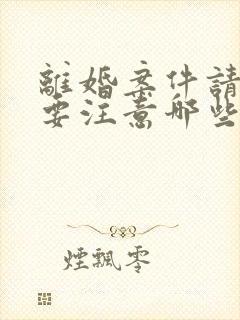 離婚案件請
要注意哪些
煙飄零